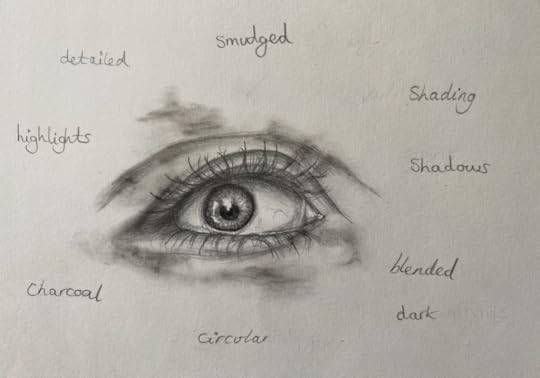 smudged
detailed
Shading
highlights
Shadows
blended
Charcoal
dark
circular